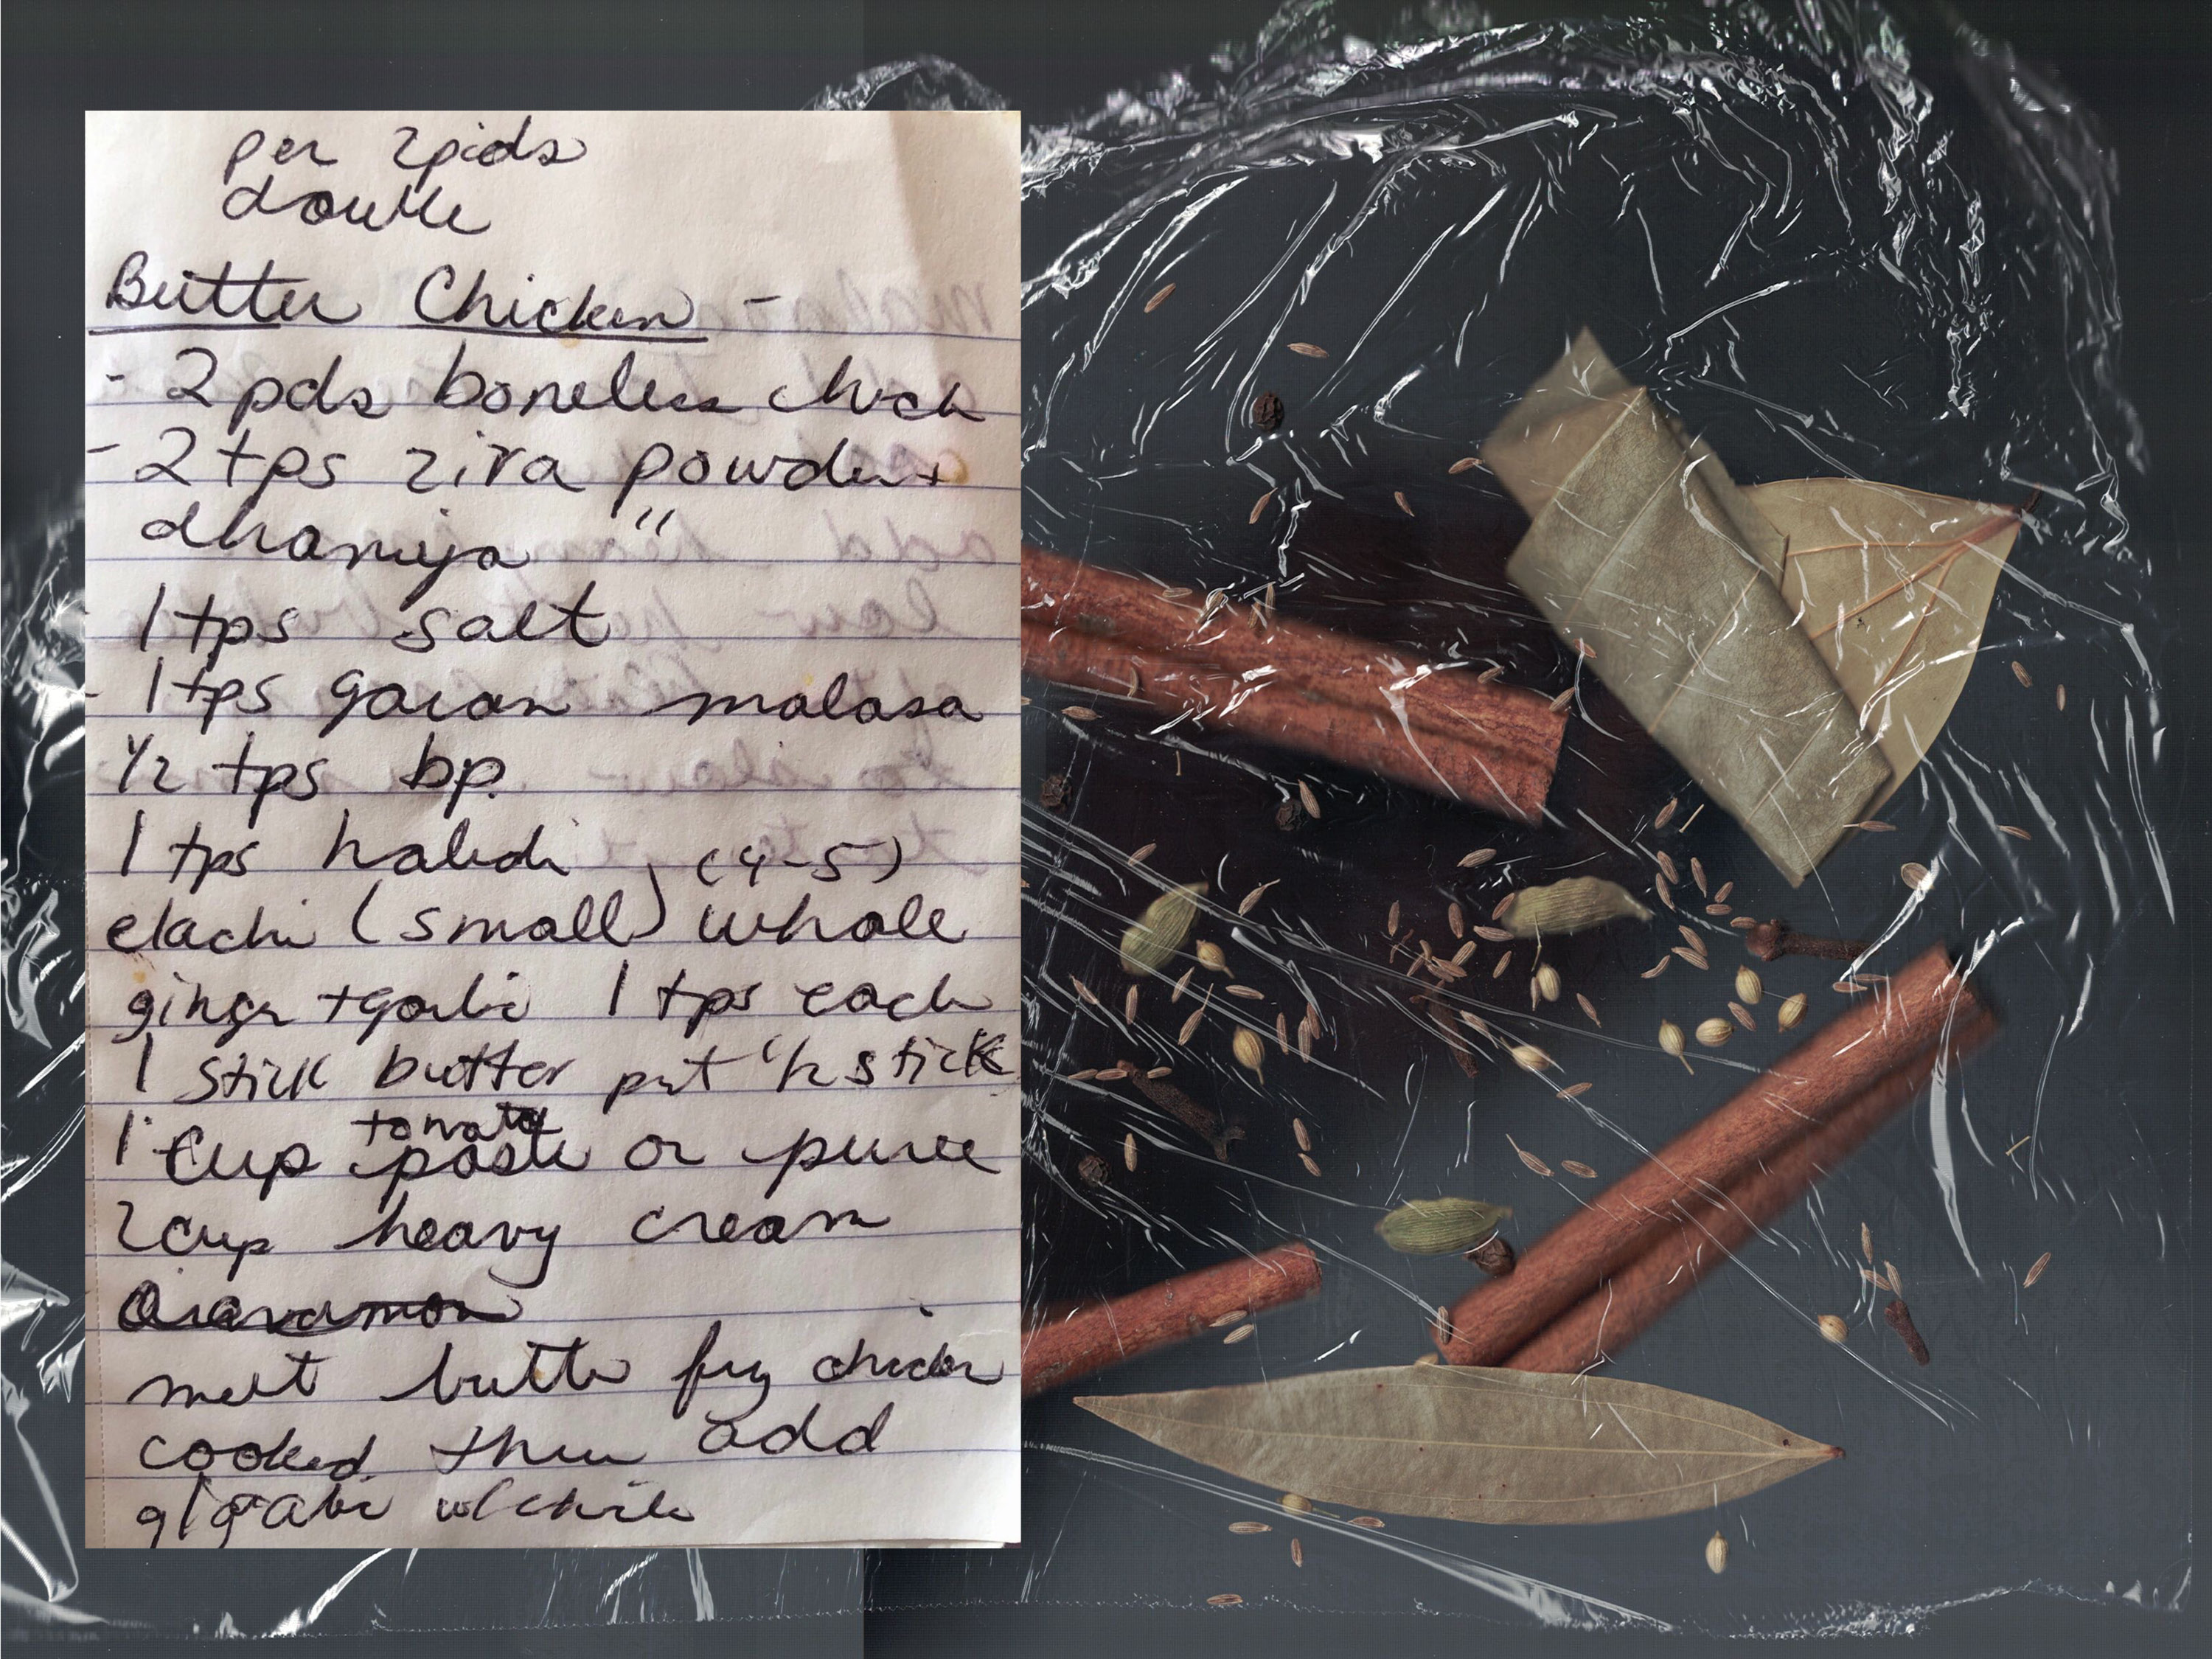 per 2pds
double
Butter Chicken -
- 2 pds boneless chick
- 2 tps zira powder +
dhaniya "
1 tps salt
- 1 tps garam malasa
1/2 tps bp.
1 tps haldi (4-5)
elachi (small) whole
ginger + garlic 1 tps each
1 stick butter put 1/2 stick
tomato
1 cup paste or puree
2 cup heavy cream
melt butter fry chicken
cooked then add
g/garlic w/